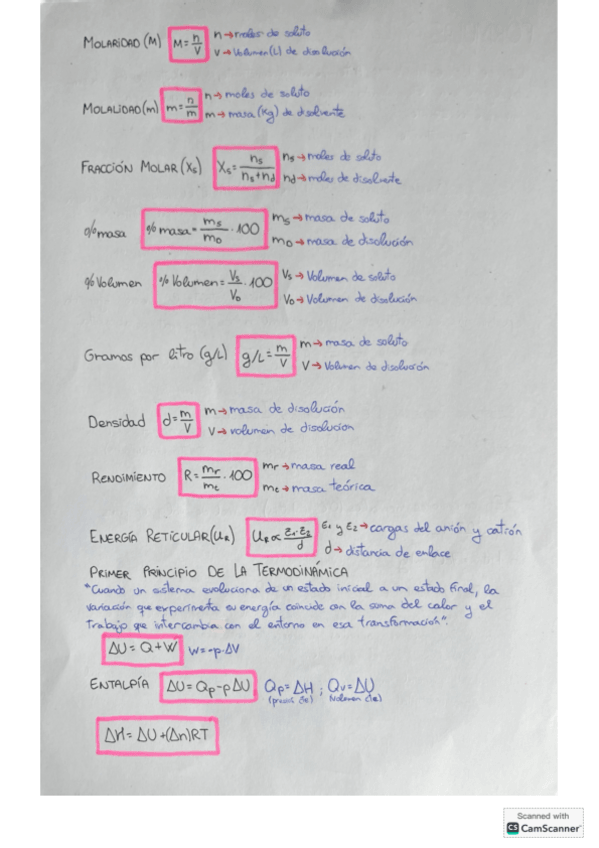 MOLARIDAD (M) M = n/V n → moles de soluto
V → Volumen (L) de disolución
MOLALIDAD (m) m = n/m n → moles de soluto
m → masa (Kg) de disolvente
FRACCIÓN MOLAR (Xs) Xs = ns/(ns+nd) ns → moles de soluto
nd → moles de disolvente
% masa % masa = ms/mD · 100 ms → masa de soluto
mD → masa de disolución
% Volumen % Volumen = Vs/VD · 100 Vs → Volumen de soluto
VD → Volumen de disolución
Gramos por litro (g/L) g/L = m/V m → masa de soluto
V → Volumen de disolución
Densidad d = m/V m → masa de disolución
V → volumen de disolucion
RENDIMIENTO R = mr/mt · 100 mr → masa real
mt → masa teórica
ENERGÍA RETICULAR (UR) UR ∝ Z1·Z2/d Z1 y Z2 → cargas del anión y catión
d → distancia de enlace
PRIMER PRINCIPIO DE LA TERMODINÁMICA
"Cuando un sistema evoluciona de un estado inicial a un estado final, la
variación que experimenta su energía coincide con la suma del calor y el
trabajo que intercambia con el entorno en esa transformación".
ΔU = Q + W W = -p·ΔV
ENTALPÍA ΔU = Qp - pΔU Qp = ΔH ; Qv = ΔU
ΔH = ΔU + (Δn)RT
Scanned with
CS CamScanner